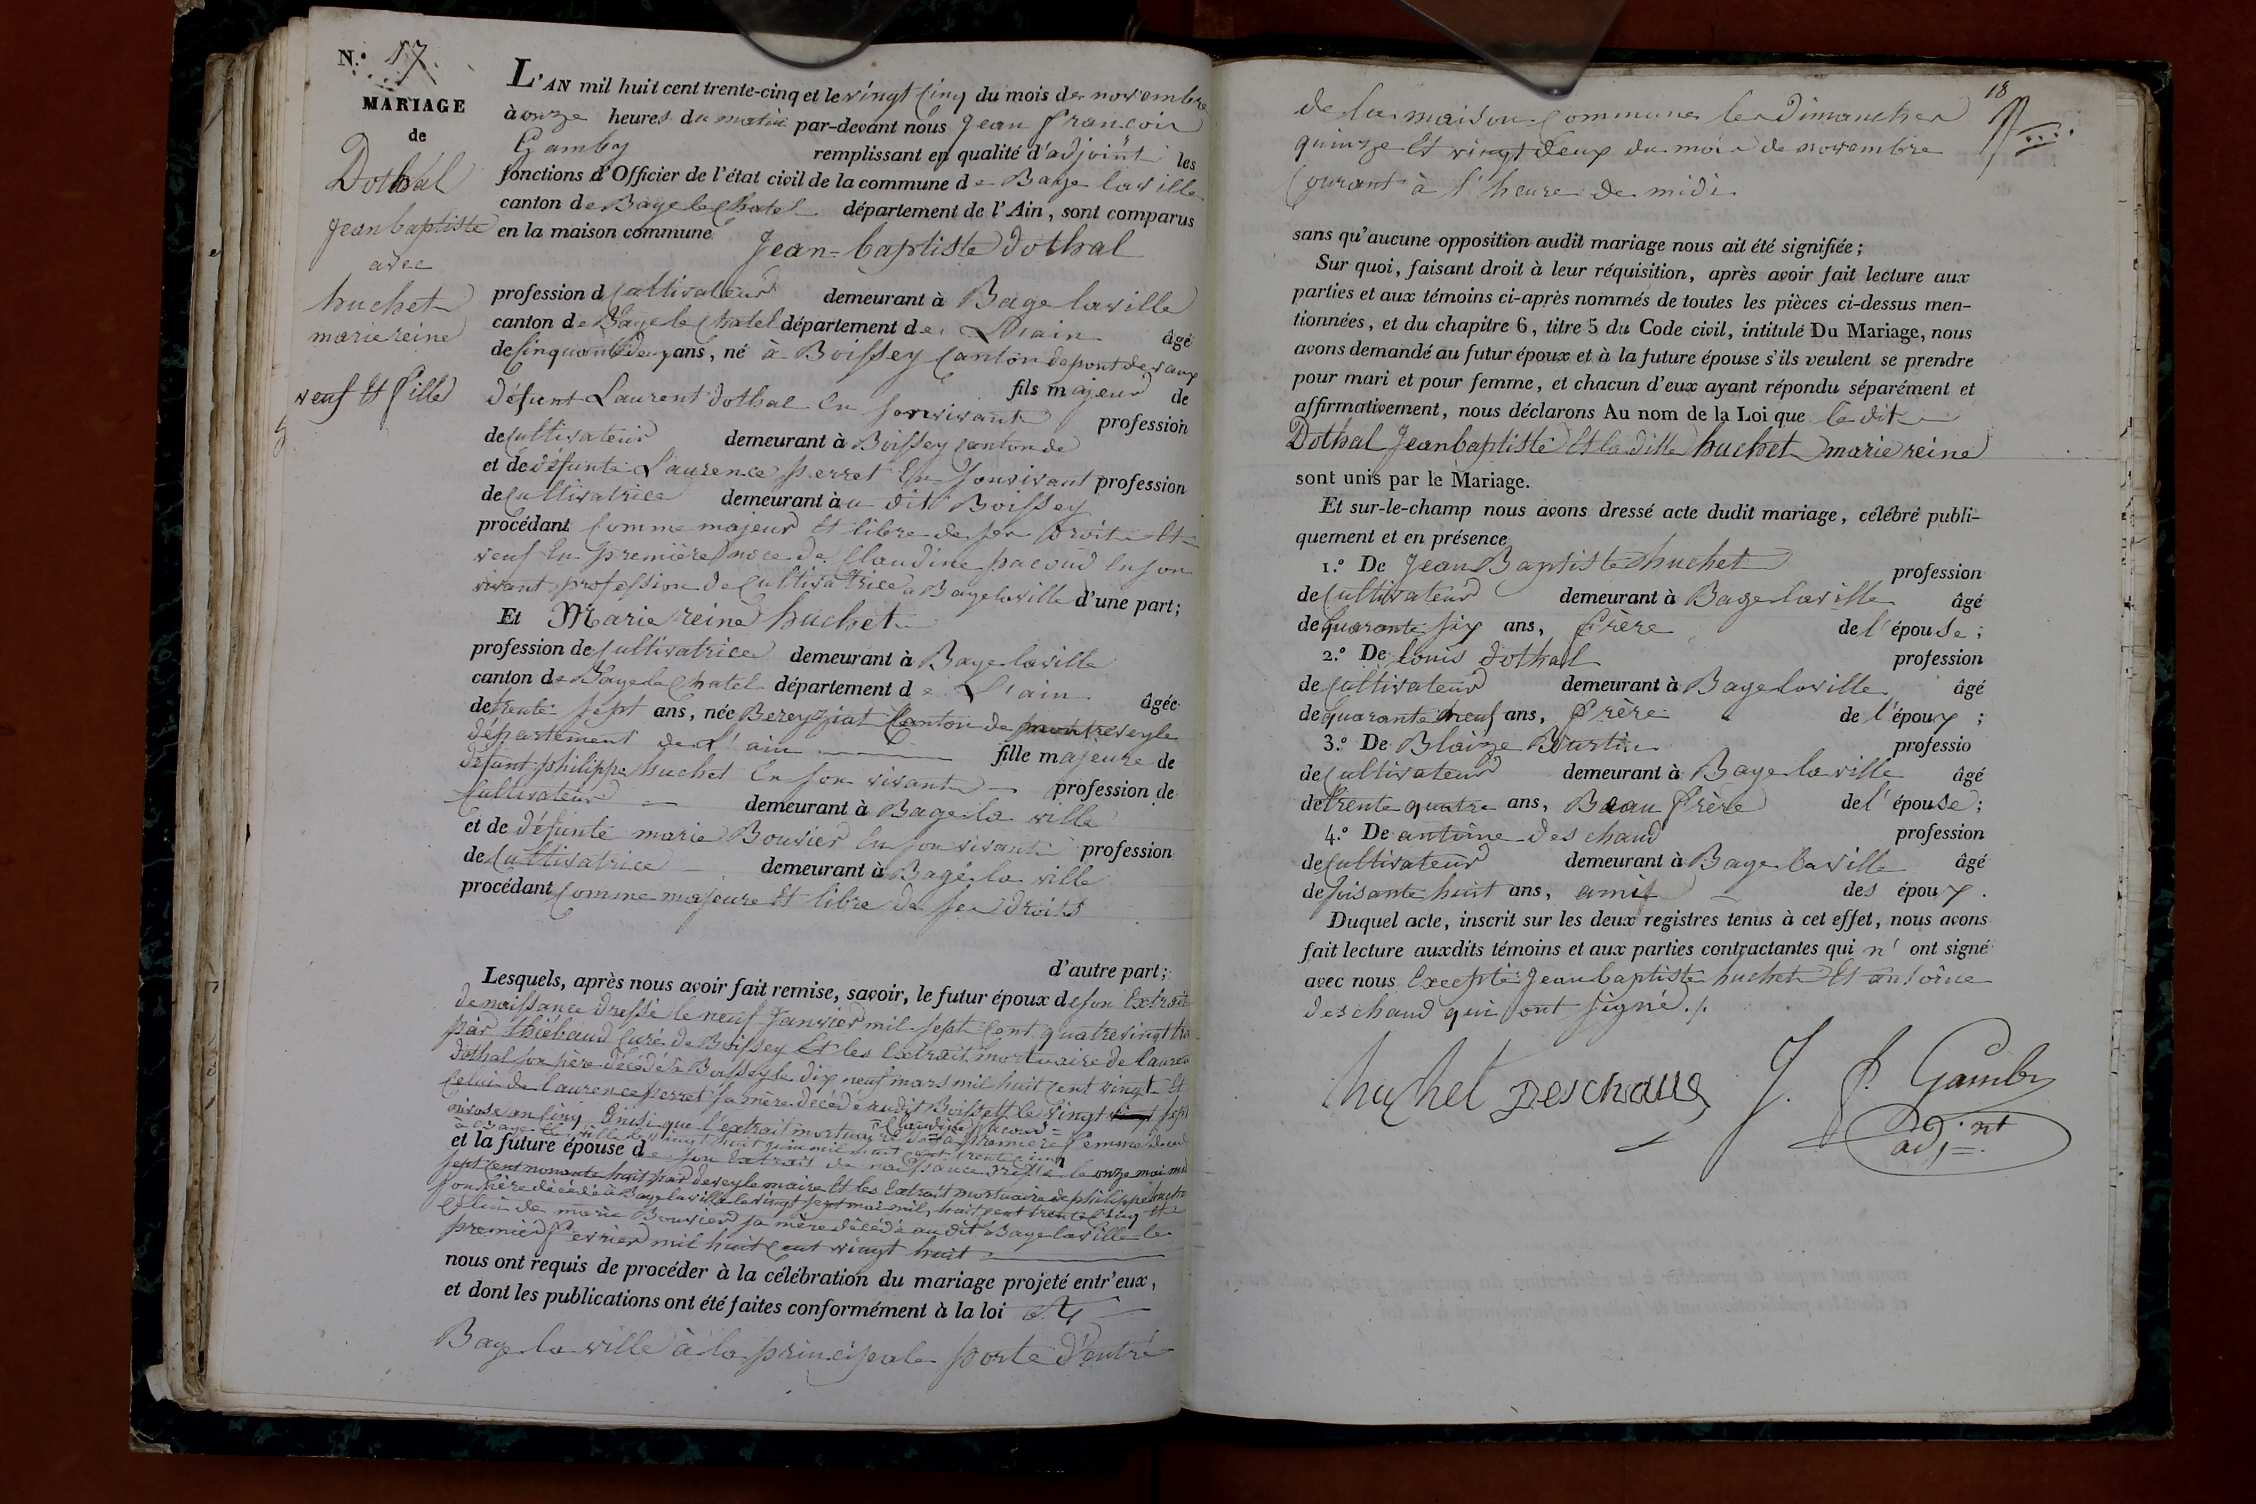 N.° 17.
MARIAGE
de
Dothal
Jean baptiste
avec
huchet
marie reine
veuf Et fille
L'AN mil huit cent trente-cinq et le vingt Cinq du mois de novembre
à onze heures du matin par-devant nous Jean françois
Gamby remplissant en qualité d'adjoint les
fonctions d'Officier de l'état civil de la commune de Bage laville
canton de Bage le Chatel département de l'Ain, sont comparus
en la maison commune Jean=baptiste dothal
profession de Cultivateur demeurant à Bage laville
canton de Bage le Chatel département de L'ain âgé
de Cinquante deux ans, né à Boissey Canton de pont de vaux
fils majeur de
défunt Laurent dothal En son vivant profession
de Cultivateur demeurant à Boissey canton de
et de défunte Laurence perret En son vivant profession
de Cultivatrice demeurant au dit Boissey
procédant Comme majeur Et libre de ses droits Et
veuf En première noce de Claudine pacoud En son
vivant profession de Cultivatrice à Bage laville d'une part;
Et Marie reine huchet
profession de Cultivatrice demeurant à Bage laville
canton de Bage le Chatel département de L'ain âgée
de trente sept ans, née Bereyziat Canton de montreveyle
département de L'ain fille majeure de
défunt philippe huchet En son vivant profession de
Cultivateur demeurant à Bage la ville
et de défunte marie Bouvier En son vivant profession
de Cultivatrice demeurant à Bage la ville
procédant Comme majeure Et libre de ses droits
d'autre part;
Lesquels, après nous avoir fait remise, savoir, le futur époux de son Extrait
de naissance dressé le neuf Janvier mil sept Cent quatre vingt
par thiébaud Curé de Boissey Et les Extrait mortuaire de
dothal son père décédé à Boissey le dix neuf mars mil huit Cent vingt Et
Celui de laurence perret sa mère décédé au dit Boissey le vingt sept
nivose an Cinq Ainsi que l'extrait mortuaire de Claudine pacoud sa première femme
à Bage la ville le vingt huit juin mil huit cent trente cinq
et la future épouse de son Extrait de naissance dressé le onze mai mil
sept cent nonante huit par le maire Et les Extrait mortuaire de philippe huchet
son père décédé à Bage la ville le vingt sept mai mil huit cent trente Cinq Et
Celui de marie Bouvier sa mère décédé au dit Bage la ville le
premier fevrier mil huit Cent vingt huit
nous ont requis de procéder à la célébration du mariage projeté entr'eux,
et dont les publications ont été faites conformément à la loi à
Bage la ville à la principale porte d'entré
18
de la maison Commune les dimanches
quinze Et vingt deux du mois de novembre
Courant à l'heure de midi
sans qu'aucune opposition audit mariage nous ait été signifiée;
Sur quoi, faisant droit à leur réquisition, après avoir fait lecture aux
parties et aux témoins ci-après nommés de toutes les pièces ci-dessus men-
tionnées, et du chapitre 6, titre 5 du Code civil, intitulé Du Mariage, nous
avons demandé au futur époux et à la future épouse s'ils veulent se prendre
pour mari et pour femme, et chacun d'eux ayant répondu séparément et
affirmativement, nous déclarons Au nom de la Loi que le dit
Dothal Jean baptiste Et la ditte huchet marie reine
sont unis par le Mariage.
Et sur-le-champ nous avons dressé acte dudit mariage, célébré publi-
quement et en présence
1.° De Jean Baptiste huchet profession
de Cultivateur demeurant à Bage laville âgé
de quarante six ans, frère de l'épouse;
2.° De louis dothal profession
de Cultivateur demeurant à Bage laville âgé
de quarante neuf ans, frère de l'époux;
3.° De Blaize Bourtin professio
de Cultivateur demeurant à Bage la ville âgé
de trente quatre ans, Beau frère de l'épouse;
4.° De antoine deschaud profession
de Cultivateur demeurant à Bage la ville âgé
de soisante huit ans, amis des époux.
Duquel acte, inscrit sur les deux registres tenus à cet effet, nous avons
fait lecture auxdits témoins et aux parties contractantes qui n'ont signé
avec nous Excepté Jean baptiste huchet Et antoine
deschaud qui ont signé./.
huchet Deschaud J. f. Gamby
adj.nt